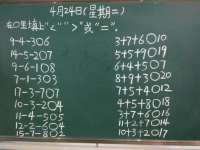 4月24日(星期二)
在○里填上"<"">"或"="。
9-4-3○6
14-5-2○7
9-6-1○8
7-1-3○3
17-3-7○7
10-3-2○4
11-4-5○5
12-2-6○4
15-7-8○2
3+7+6○10
5+5+9○19
6+4+5○7
8+9+3○20
7+5+4○12
4+5+8○18
3+7+6○14
11+2+7○16
10+3+2○17